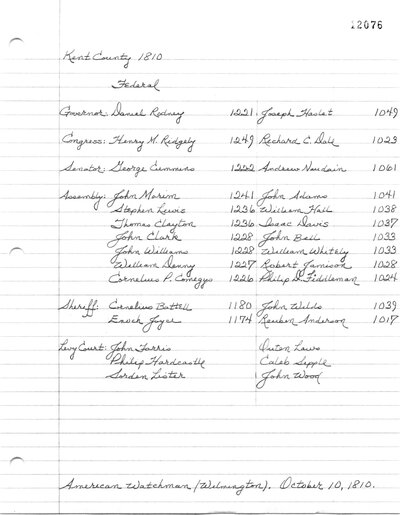 12076
Kent County 1810
Federal
Governor: Daniel Rodney 1221; Joseph Haslet 1049
Congress: Henry M. Ridgely 1249 Richard C. Dale 1023
Senator: George Cummins 1222 Andrew Naudain 1061
Assembly: John Marim 1241 John Adams 1041
Stephen Lewis 1236 William Hall 1038
Thomas Clayton 1236 Isaac Davis 1037
John Clark 1228 John Bell 1033
John Williams 1228 William Whitely 1033
William Denny 1227 Robert Jamison 1028
Cornelius P. Comegys 1226 Philip D. Fiddleman 1024
Sheriff: Cornelius Battell 1180 John Wilds 1039
Enoch Joyce 1174 Reuben Anderson 1017
Levy Court: John Farris Outen Laws
Philip Hardcastle Caleb Sipple
Jorden Lister John Wood
American Watchman (Wilmington). October 10, 1810.